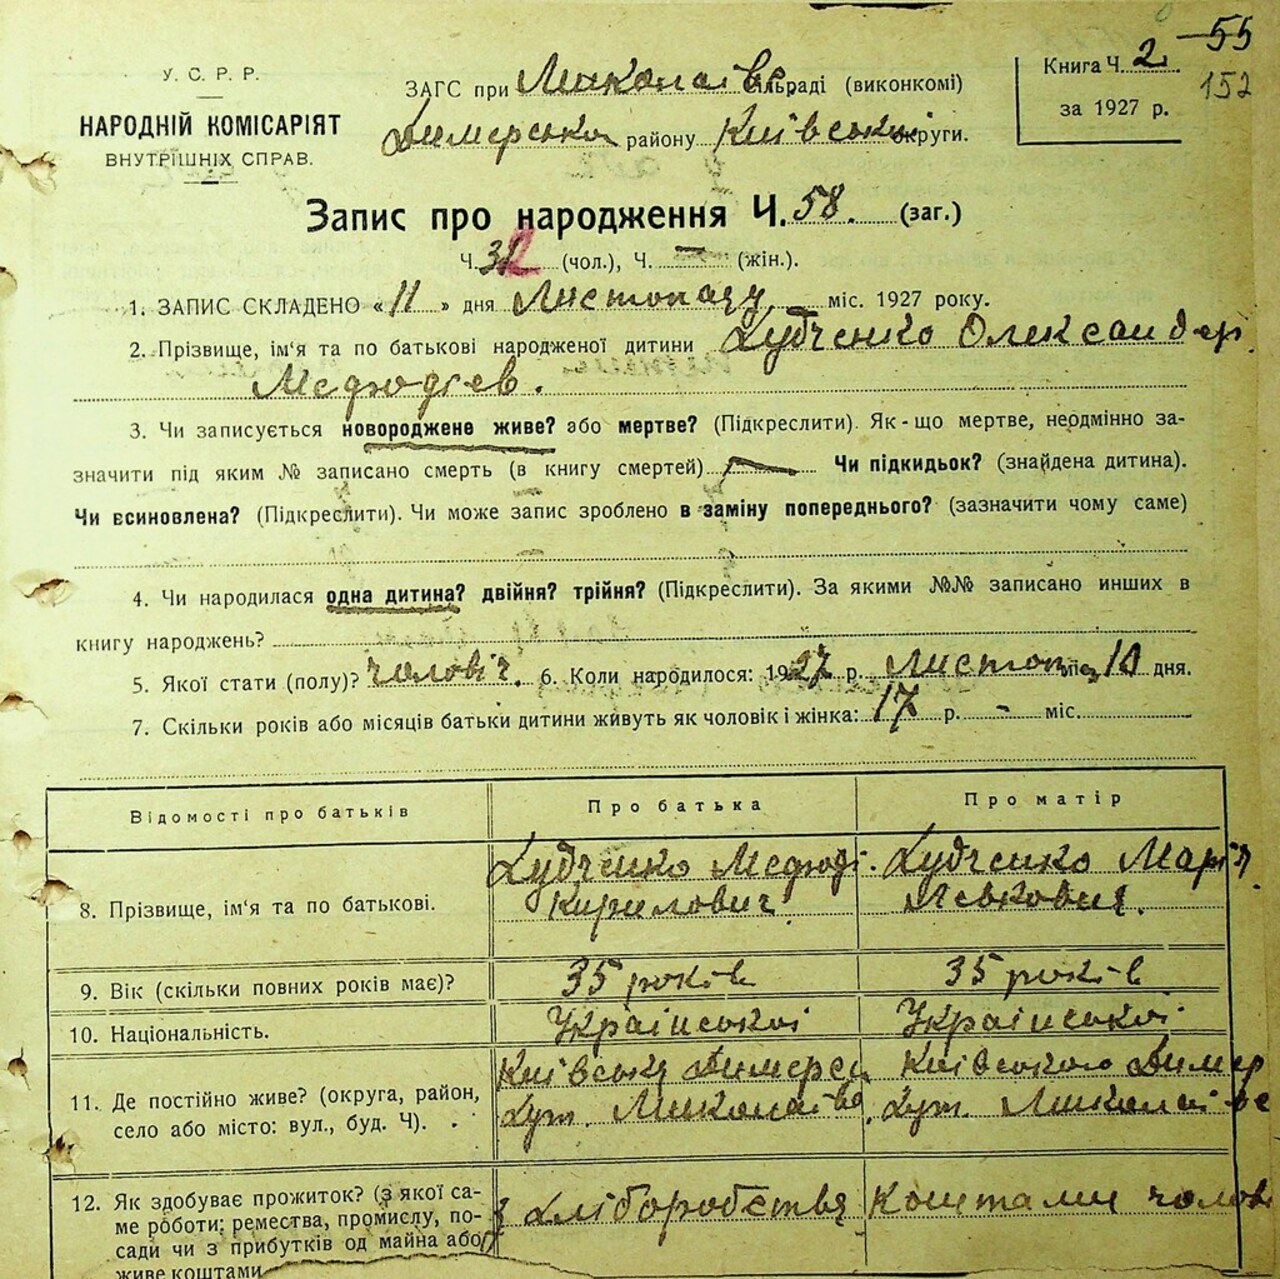 55
152
У. С. Р. Р.
НАРОДНІЙ КОМІСАРІЯТ
ВНУТРІШНІХ СПРАВ.
ЗАГС при Миколаївс сільраді (виконкомі)
Димерськ району Київськ округи.
Книга Ч. 2
за 1927 р.
Запис про народження Ч. 58. (заг.)
Ч. 32 (чол.), Ч. — (жін.).
1. ЗАПИС СКЛАДЕНО « 11 » дня Листопаду міс. 1927 року.
2. Прізвище, ім'я та по батькові народженої дитини Дубченко Олександер
Мефодієв.
3. Чи записується новороджене живе? або мертве? (Підкреслити). Як-що мертве, неодмінно за-
значити під яким № записано смерть (в книгу смертей) — Чи підкидьок? (знайдена дитина).
Чи всиновлена? (Підкреслити). Чи може запис зроблено в заміну попереднього? (зазначити чому саме)
4. Чи народилася одна дитина? двійня? трійня? (Підкреслити). За якими №№ записано инших в
книгу народжень?
5. Якої стати (полу)? чоловіч. 6. Коли народилося: 1927 р. Листоп. міс. 10 дня.
7. Скільки років або місяців батьки дитини живуть як чоловік і жінка: 17 р. - міс.
Відомості про батьків Про батька Про матір
8. Прізвище, ім'я та по батькові. Дубченко Мефоді Дубченко Марія
Кирилович Левковна.
9. Вік (скільки повних років має)? 35 років 35 років
10. Національність. Української Української
11. Де постійно живе? (округа, район, село або місто: вул., буд. Ч). Київська Димерс Київського Димер
Хут. Миколаївс Хут. Миколаївс
12. Як здобуває прожиток? (з якої са- з Хліборобства Коштами чолові
ме роботи: ремества, промислу, по-
сади чи з прибутків од майна або
живе коштами